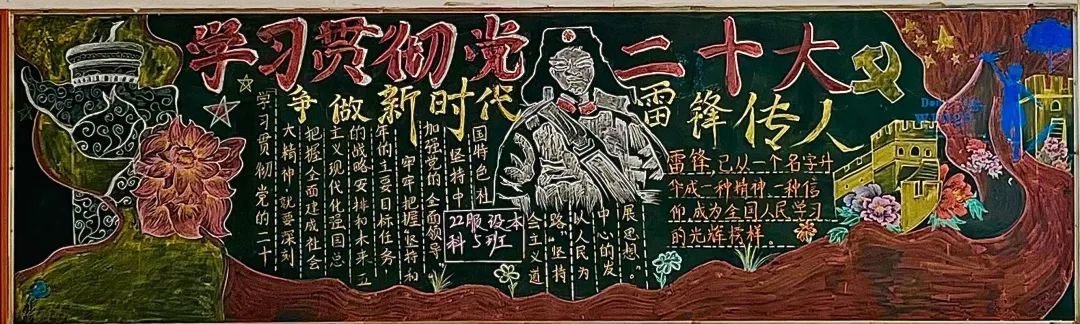 学习贯彻党 二十大
争做新时代 雷锋传人
“学习贯彻党的二十
大精神，就要深刻
把握全面建成社会
主义现代化强国总
的战略安排和未来五
年的主要目标任务，
牢牢把握“坚持和
加强党的全面领导”
坚持中
国特色社
会主义道
路”“坚持
以人民为
中心的发
展思想”。
22服设本
科5班
雷锋，已从一个名字升
华成一种精神一种信
仰，成为全国人民学习
的光辉榜样。